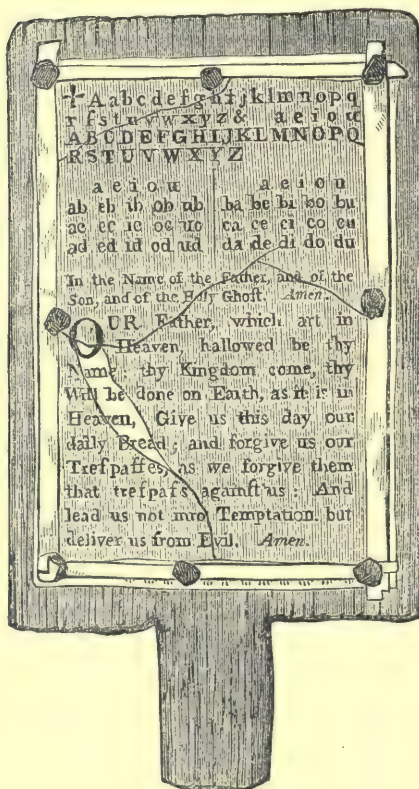 ✝ A a b c d e f g h i j k l m n o p q
r ſ s t u v w x y z & a e i o u
A B C D E F G H I J K L M N O P Q
R S T U V W X Y Z
a e i o u a e i o u
ab eb ib ob ub ba be bi bo bu
ac ec ic oc uc ca ce ci co cu
ad ed id od ud da de di do du
In the Name of the Father, and of the
Son, and of the Holy Ghoſt. Amen.
OUR Father, which art in
Heaven, hallowed be thy
Name thy Kingdom come, thy
Will be done on Earth, as it is in
Heaven, Give us this day our
daily Bread; and forgive us our
Treſpaſſes, as we forgive them
that treſpaſs againſt us: And
lead us not into Temptation. but
deliver us from Evil. Amen.